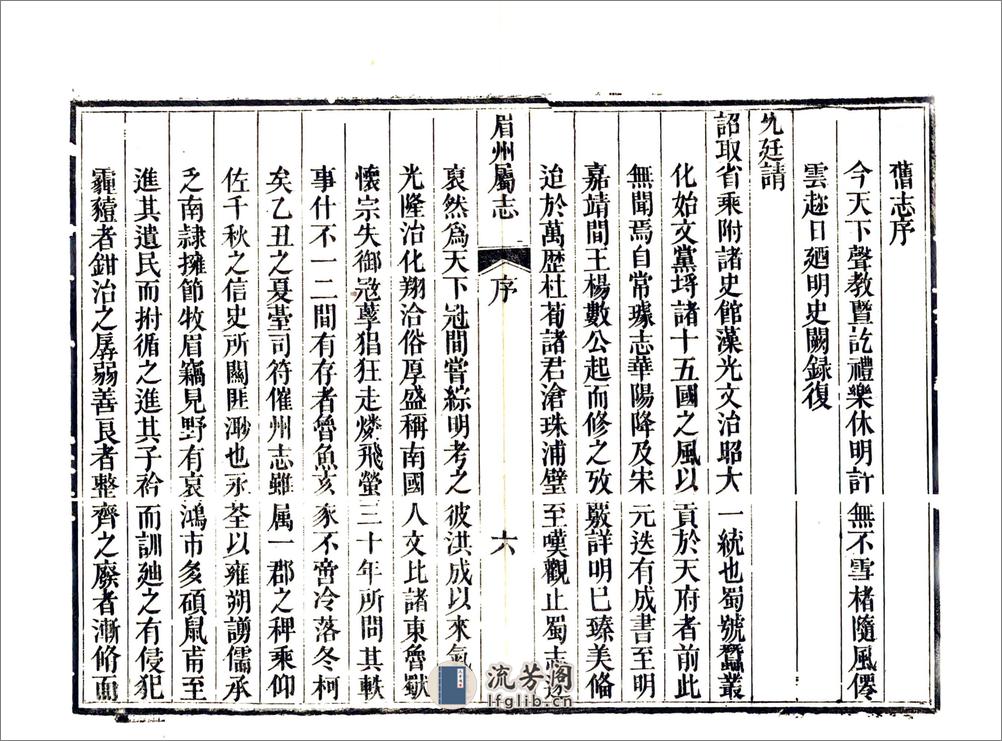 舊志序
今天下聲教暨訖禮樂休明計無不雪楮隨風僊
雲趂日廼明史闕録復
允廷請
詔取省乘附諸史館藻光文治昭大一統也蜀號蠶叢
化始文黨埒諸十五國之風以貢於天府者前此
無聞焉自常璩志華陽降及宋元迭有成書至明
嘉靖間王楊數公起而修之攷嚴詳明巳臻美備
迨於萬歴杜荀諸君滄珠浦璧至嘆觀止蜀志遂
眉州屬志
序
六
裒然爲天下冠間嘗綜明考之彼洪成以來氣
光隆治化翔洽俗厚盛稱南國人文比諸東魯獄
懷宗失御冦孽猖狂走燐飛螢三十年所問其軼
事什不一二間有存者魯魚亥豕不啻冷落冬柯
矣乙丑之夏臺司符催州志雖属一郡之稗乘仰
佐千秋之信史所關匪渺也永荃以雍朔謭儒承
乏南隷擁節牧眉竊見野有哀鴻市多碩鼠甫至
進其遺民而拊循之進其子衿而訓廸之有侵犯
霾豷者鉗治之孱弱善良者整齊之廢者漸脩而
流芳阁
lfglib.com